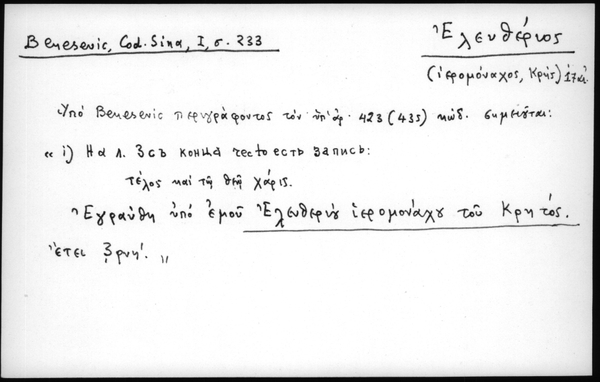 Benesevic, Cod. Sina, I, σ. 233
Ἐλευθέριος
(ἱερομόναχος, Κρής) 17 αἰ.
Ὑπό Benesevic περιγράφοντος τόν ὑπ' ἀρ. 423 (435) κώδ. σημειοῦται:
" i) На л. 3 съ конца recto есть запись:
τέλος καί τῷ θεῷ χάρις.
Ἐγράφθη ὑπό ἐμοῦ Ἐλευθερίου ἱερομονάχου τοῦ Κρητός.
Ἔτει ζρνη'. "